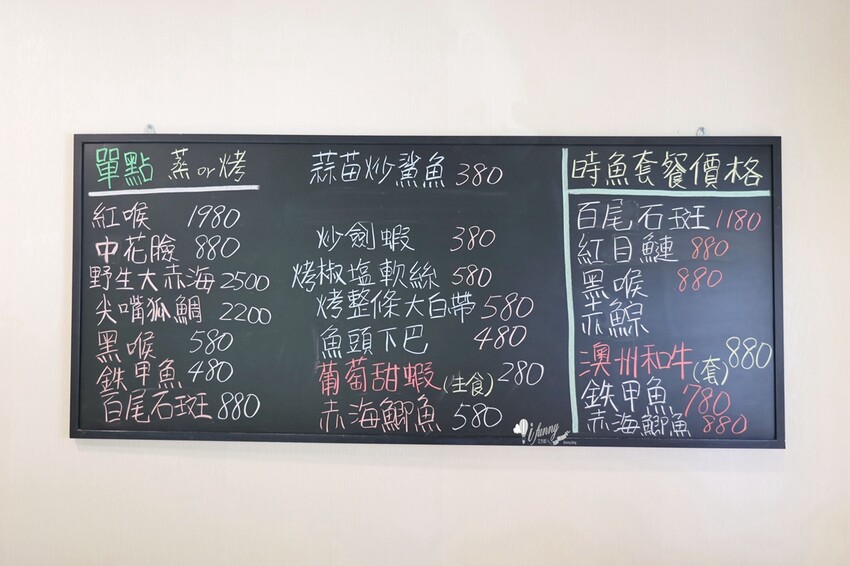 單點 蒸or烤
紅喉 1980
中花臉 880
野生大赤海 2500
尖嘴狐鯛 2200
黑喉 580
鉄甲魚 480
百尾石斑 880
蒜苗炒鯊魚 380
炒劍蝦 380
烤椒塩軟絲 580
烤整條大白帶 580
魚頭下巴 480
葡萄甜蝦(生食) 280
赤海鯽魚 580
時魚套餐價格
百尾石斑 1180
紅目鰱 880
黑喉 880
赤鯮
澳州和牛(套) 880
鉄甲魚 780
赤海鯽魚 880
i funny